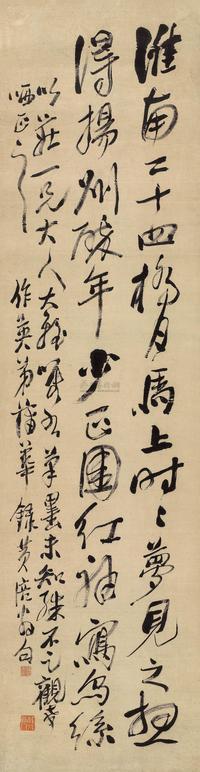 淮南二十四橋月馬上時〻夢見之想
得揚州醉年少正圍紅袖寫烏絲
以莊一兄大人大雅 筆墨未知殊不足觀幸
哂正之 作英弟蒲華錄黃涪翁句